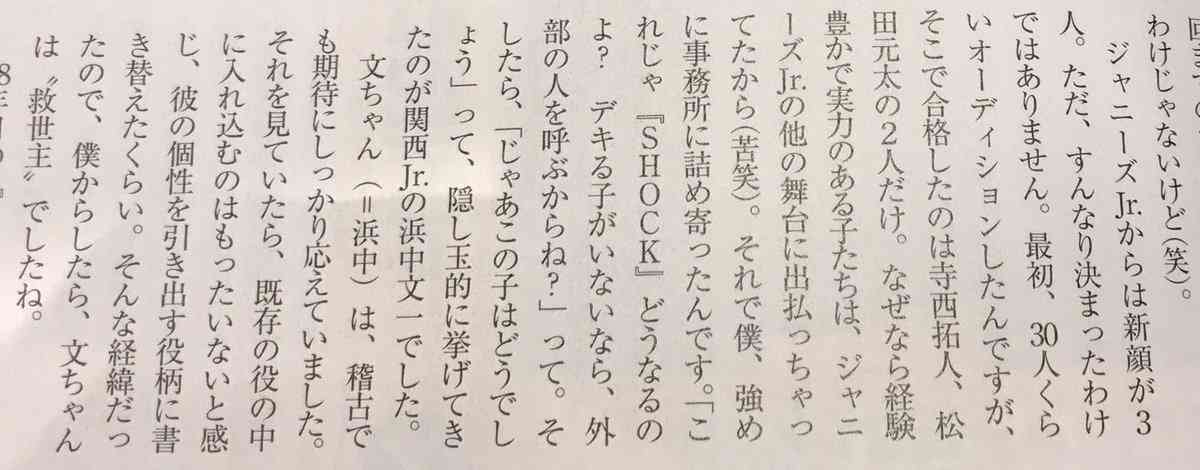 わけじゃないけど(笑)。
ジャニーズJr.からは新顔が3
人。ただ、すんなり決まったわけ
ではありません。最初、30人くら
いオーディションしたんですが、
そこで合格したのは寺西拓人、松
田元太の2人だけ。なぜなら経験
豊かで実力のある子たちは、ジャニ
ーズJr.の他の舞台に出払っちゃっ
てたから(苦笑)。それで僕、強め
に事務所に詰め寄ったんです。「こ
れじゃ『SHOCK』どうなるの
よ? デキる子がいないなら、外
部の人を呼ぶからね?」って。そ
したら、「じゃあこの子はどうでし
ょう」って、隠し玉的に挙げてき
たのが関西Jr.の浜中文一でした。
文ちゃん(=浜中)は、稽古で
も期待にしっかり応えていました。
それを見ていたら、既存の役の中
に入れ込むのはもったいないと感
じ、彼の個性を引き出す役柄に書
き替えたくらい。そんな経緯だっ
たので、僕からしたら、文ちゃん
は〝救世主〟でしたね。